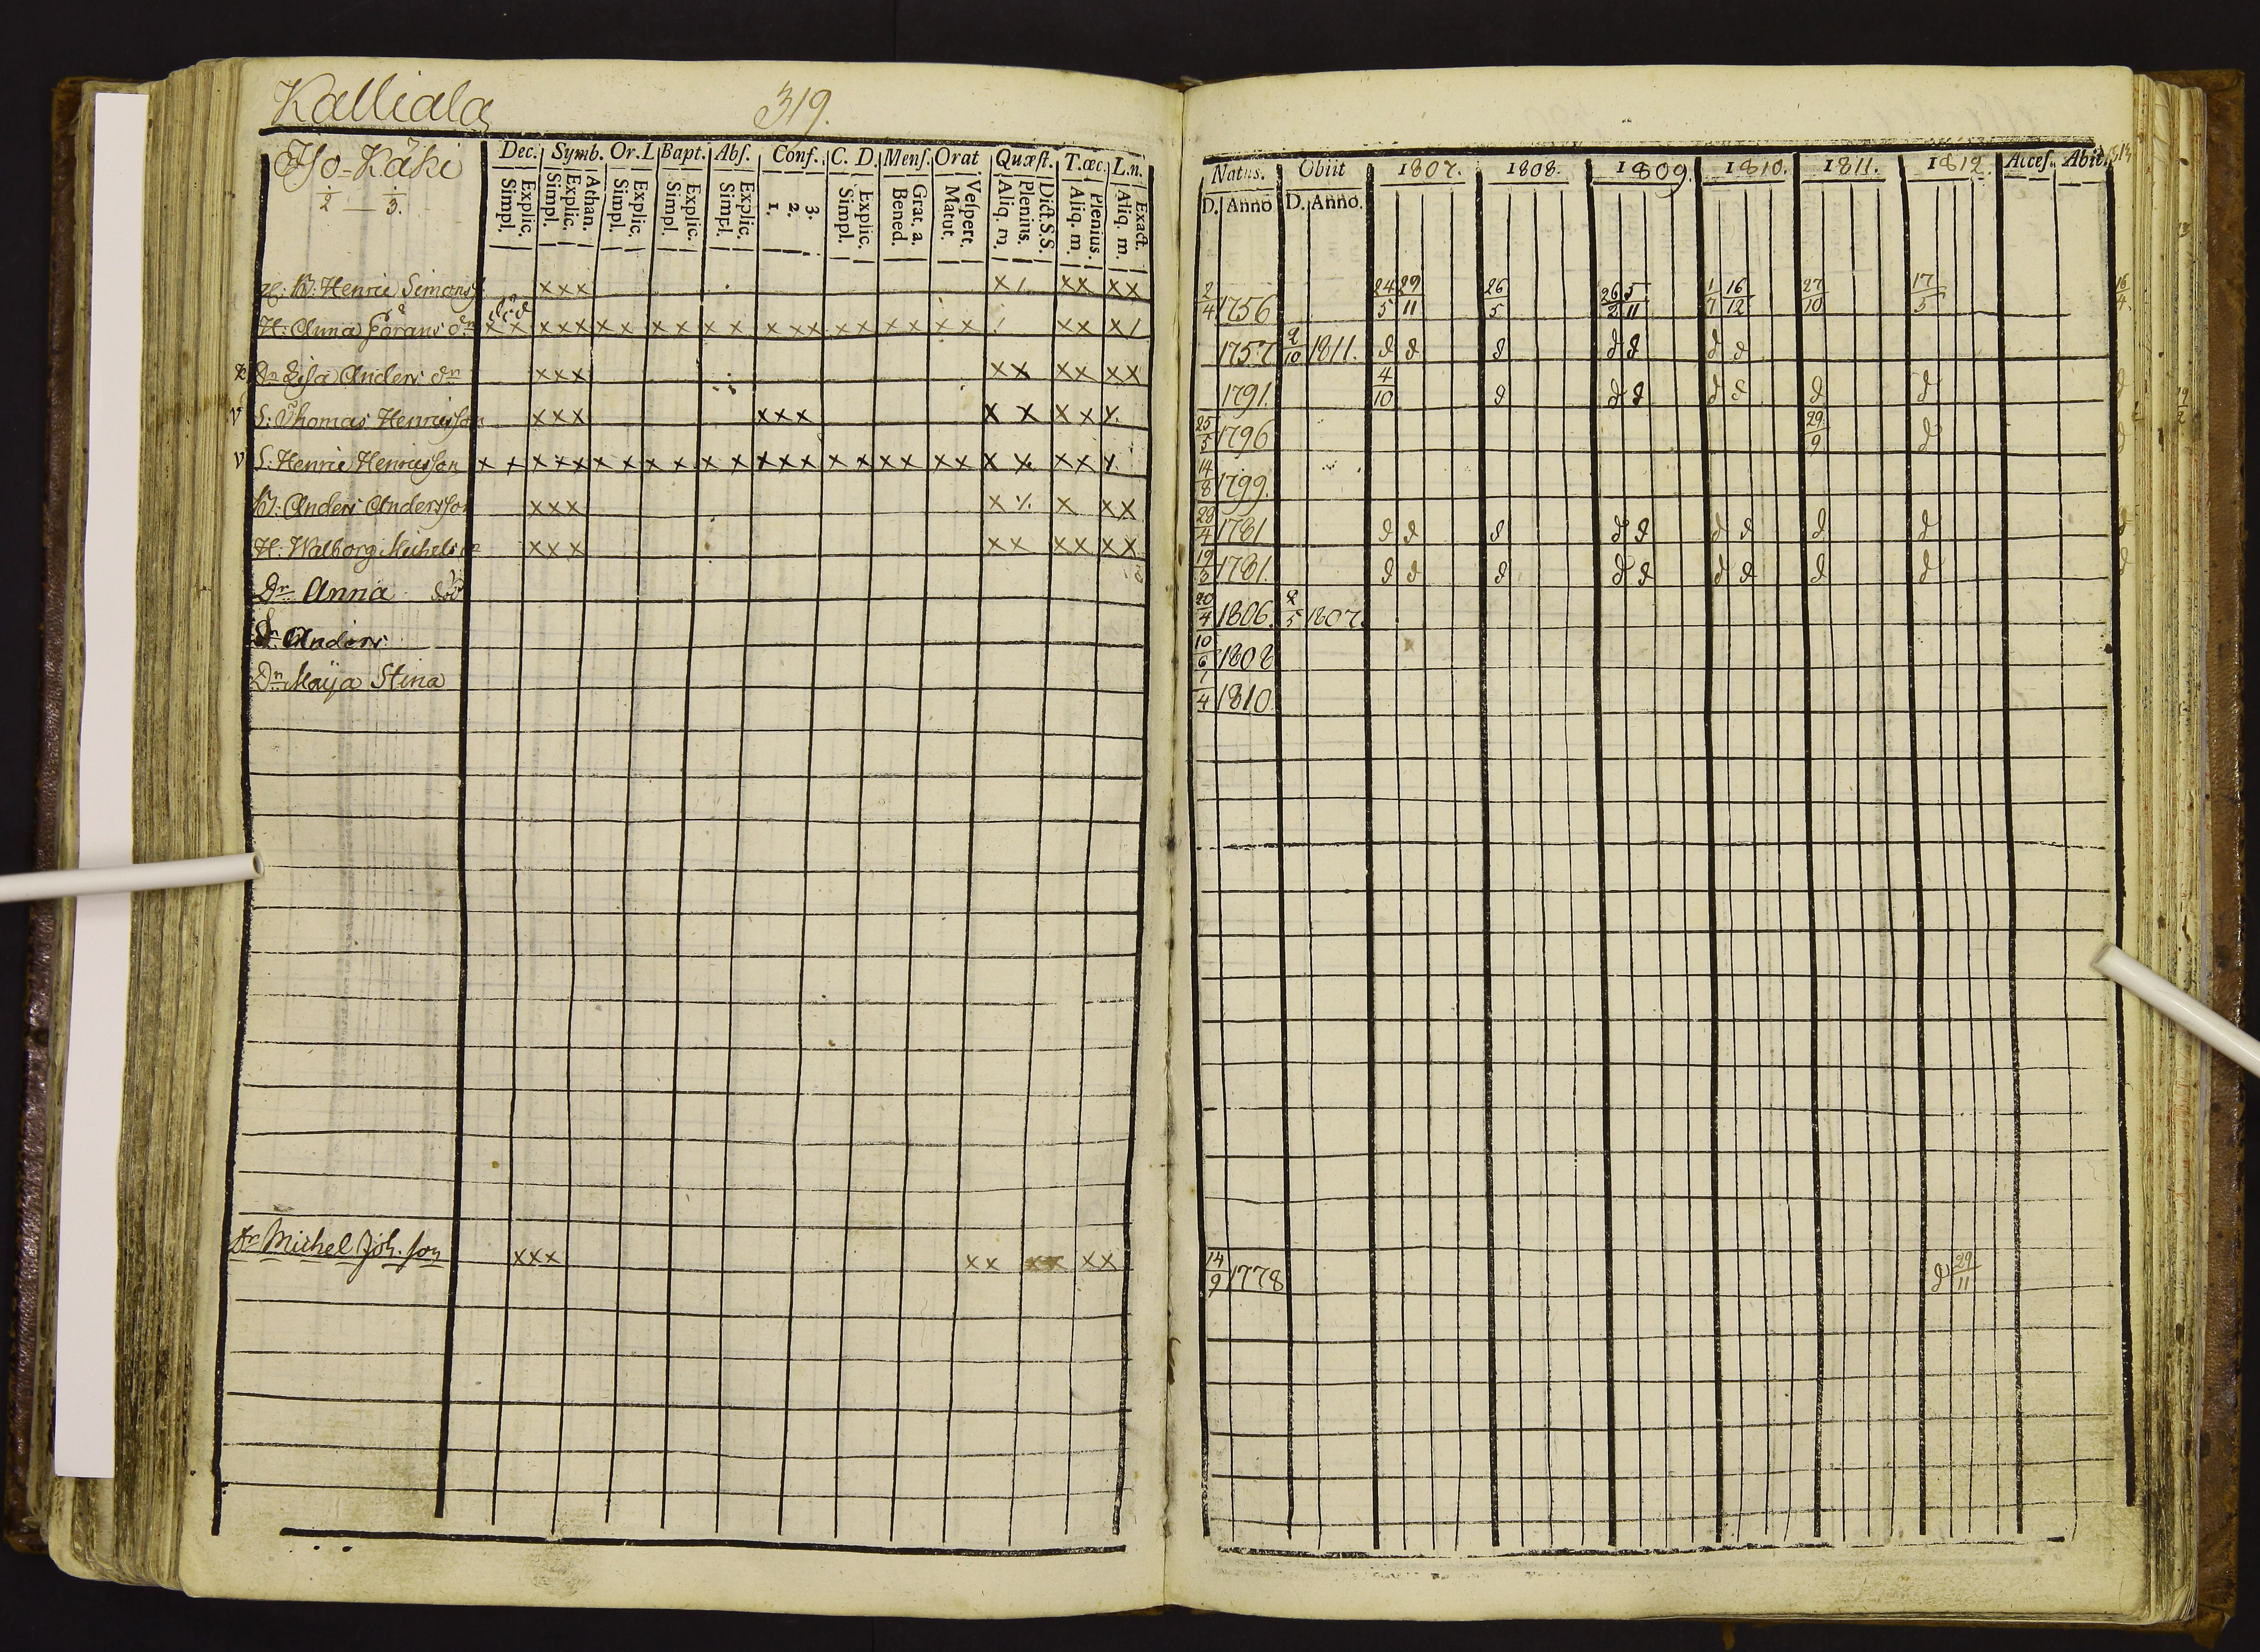 Kalliala 319.
Iso-Käki
2 — 3.
Dec. Symb. Or. L Bapt. Abſ. Conf. C. D. Menſ. Orat Quæſt. T. œc. L. n.
Simpl. Explic. Simpl. Explic. Athan. Simpl. Explic. Simpl. Explic. Simpl. Explic. 1. 2. 3. Simpl. Explic. Bened. Grat. a. Matut. Veſpert. Aliq. m. Plenius. Dict. S. S. Aliq. m. Plenius. Aliq. m. Exact.
B: Henric Simonsſ. xxx x/ xx xx
död
H: Anna Görans dr xx xxx xx xx xx xxx xx xx xx / xx x/
Anders dr xxx xx xx xx
v S: Thomas Henricsſon xxx xxx x x xx x.
v S: Henric Henricsſon x x xxx xx xx xx xxx xx xx xx x x xx x
Anders Andersſon xxx x x x xx
H. Walborg Michels dr xxx xx xx xx
Dr Anna död
Sn Anders
Dr Maija Stina
Michel Joh. ſon xxx xx xx xx
Natus. Obiit 1807. 1808. 1809. 1810. 1811. 1812. Acceſ. Abiit. 1813
D. Anno D. Anno.
2/4 1756 24/5 29/11 26/5 26/2 5/11 1/7 16/12 27/10 17/5 16/4
1757 2/10 1811. d d d d d d d
1791 4/10 d d d d d d d d
25/5 1796 29/9 d d
14/8 1799.
29/4 1781 d d d d d d d d d d
19/3 1781. d d d d d d d d d d
20/4 1806. 2/5 1807.
10/6 1808
1/4 1810
14/9 1778 d 29/11